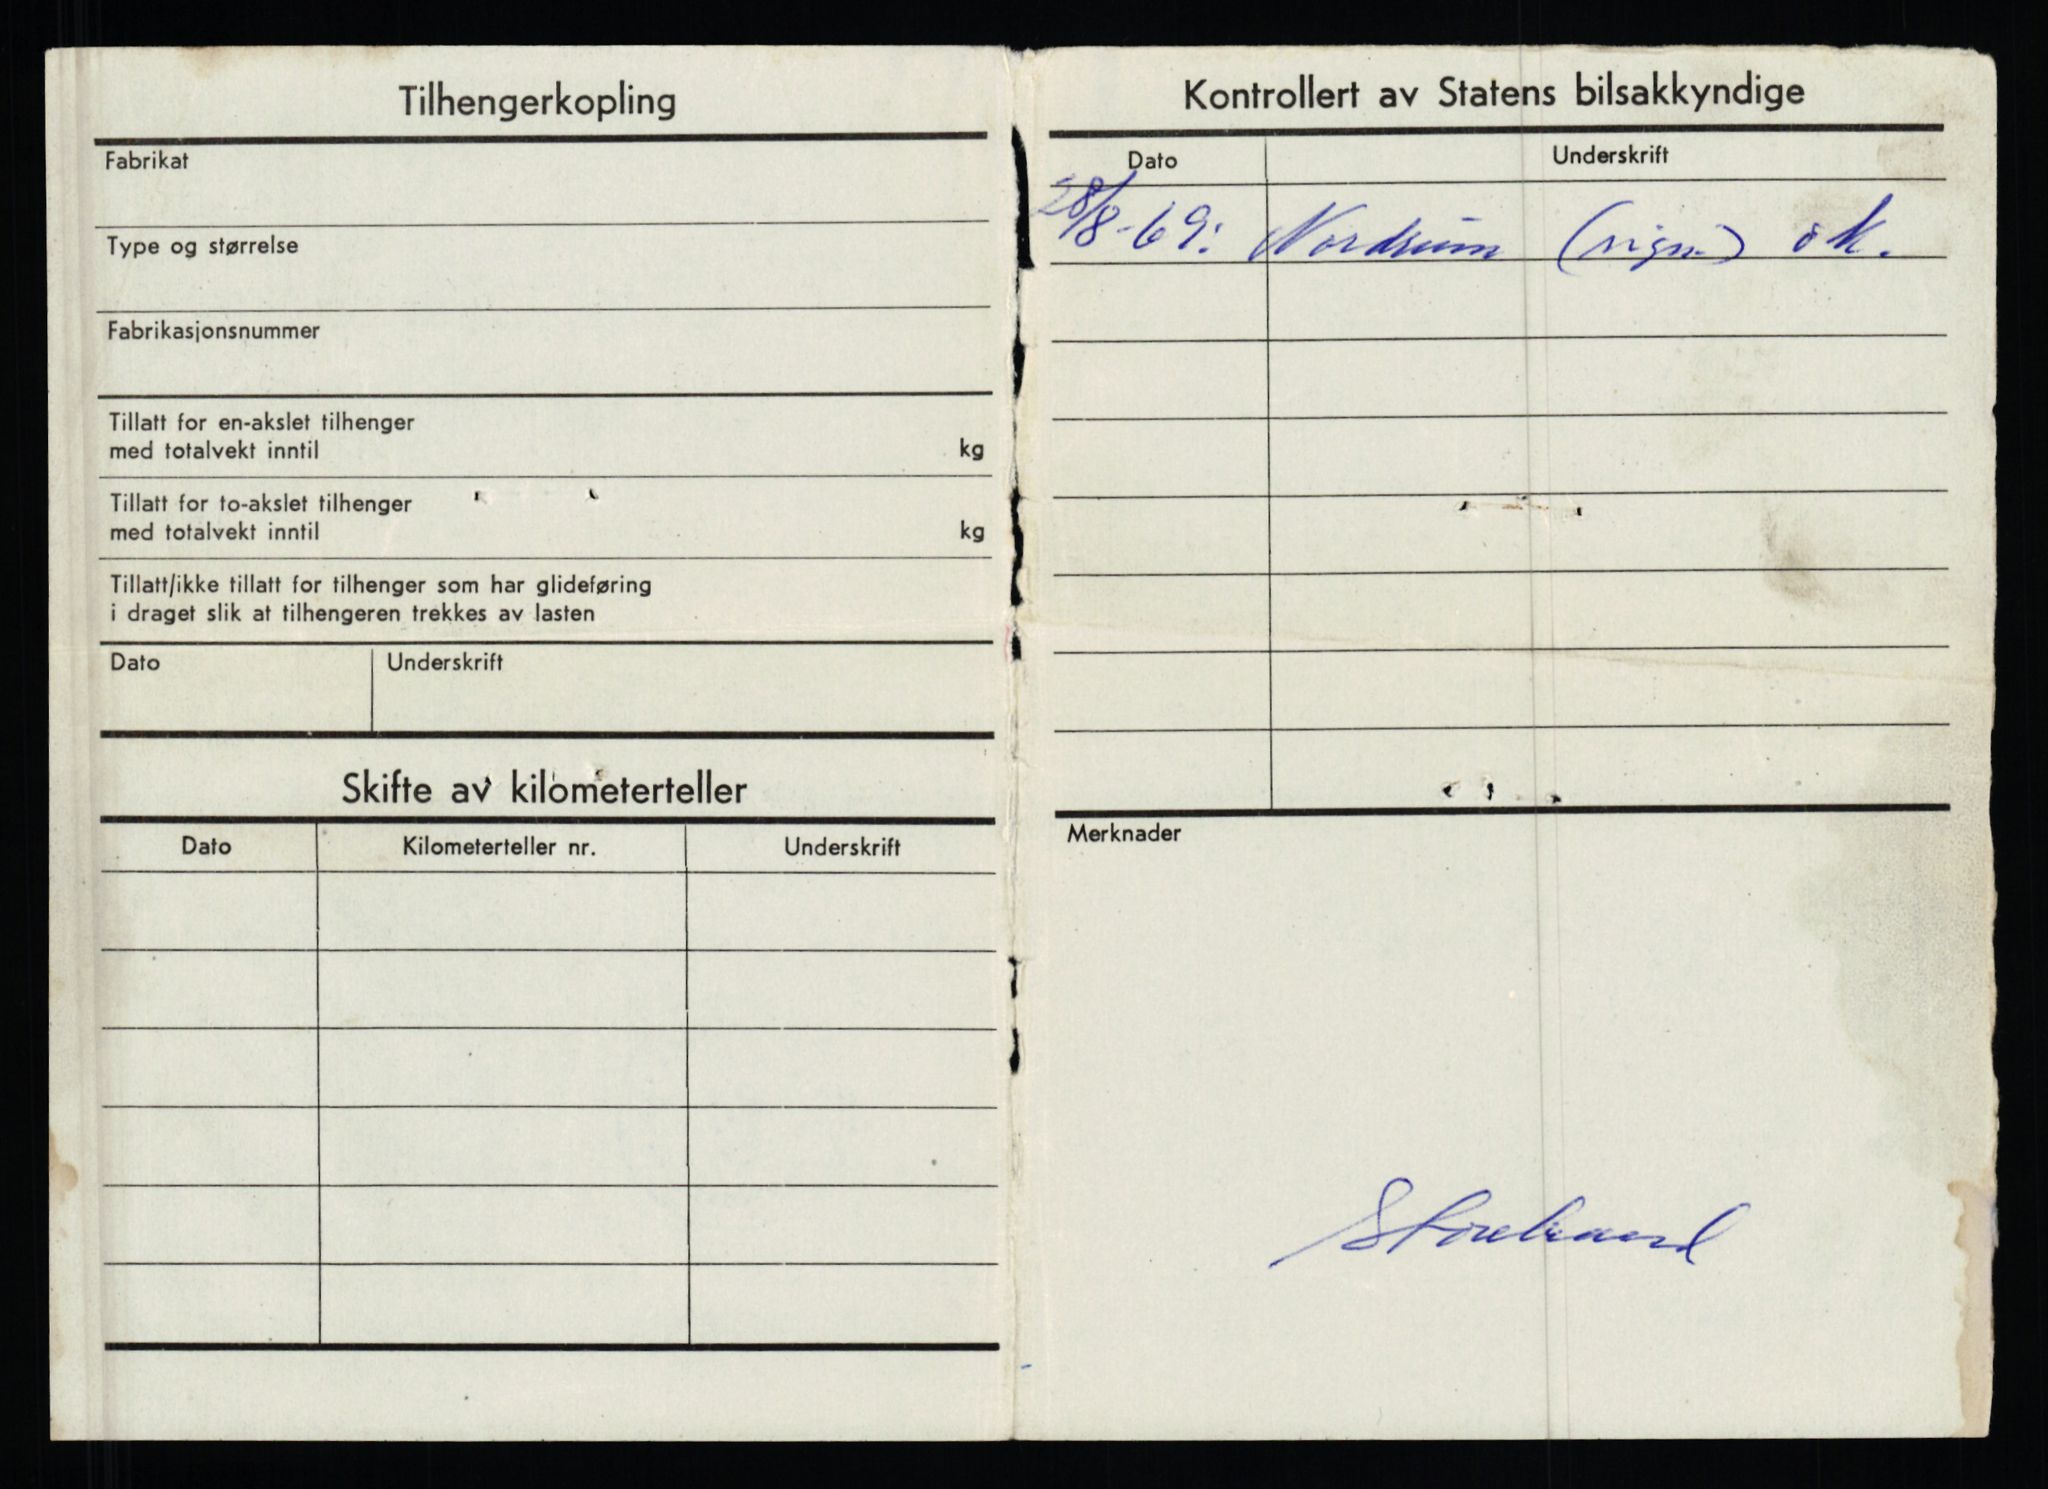 Tilhengerkopling
Fabrikat
Type og størrelse
Fabrikasjonsnummer
Tillatt for en-akslet tilhenger
med totalvekt inntil kg
Tillatt for to-akslet tilhenger
med totalvekt inntil kg
Tillatt/ikke tillatt for tilhenger som har glideføring
i draget slik at tilhengeren trekkes av lasten
Dato Underskrift
Skifte av kilometerteller
Dato Kilometerteller nr. Underskrift
Kontrollert av Statens bilsakkyndige
Dato Underskrift
28/8-69: (sign) ok.
Merknader
Storebrand